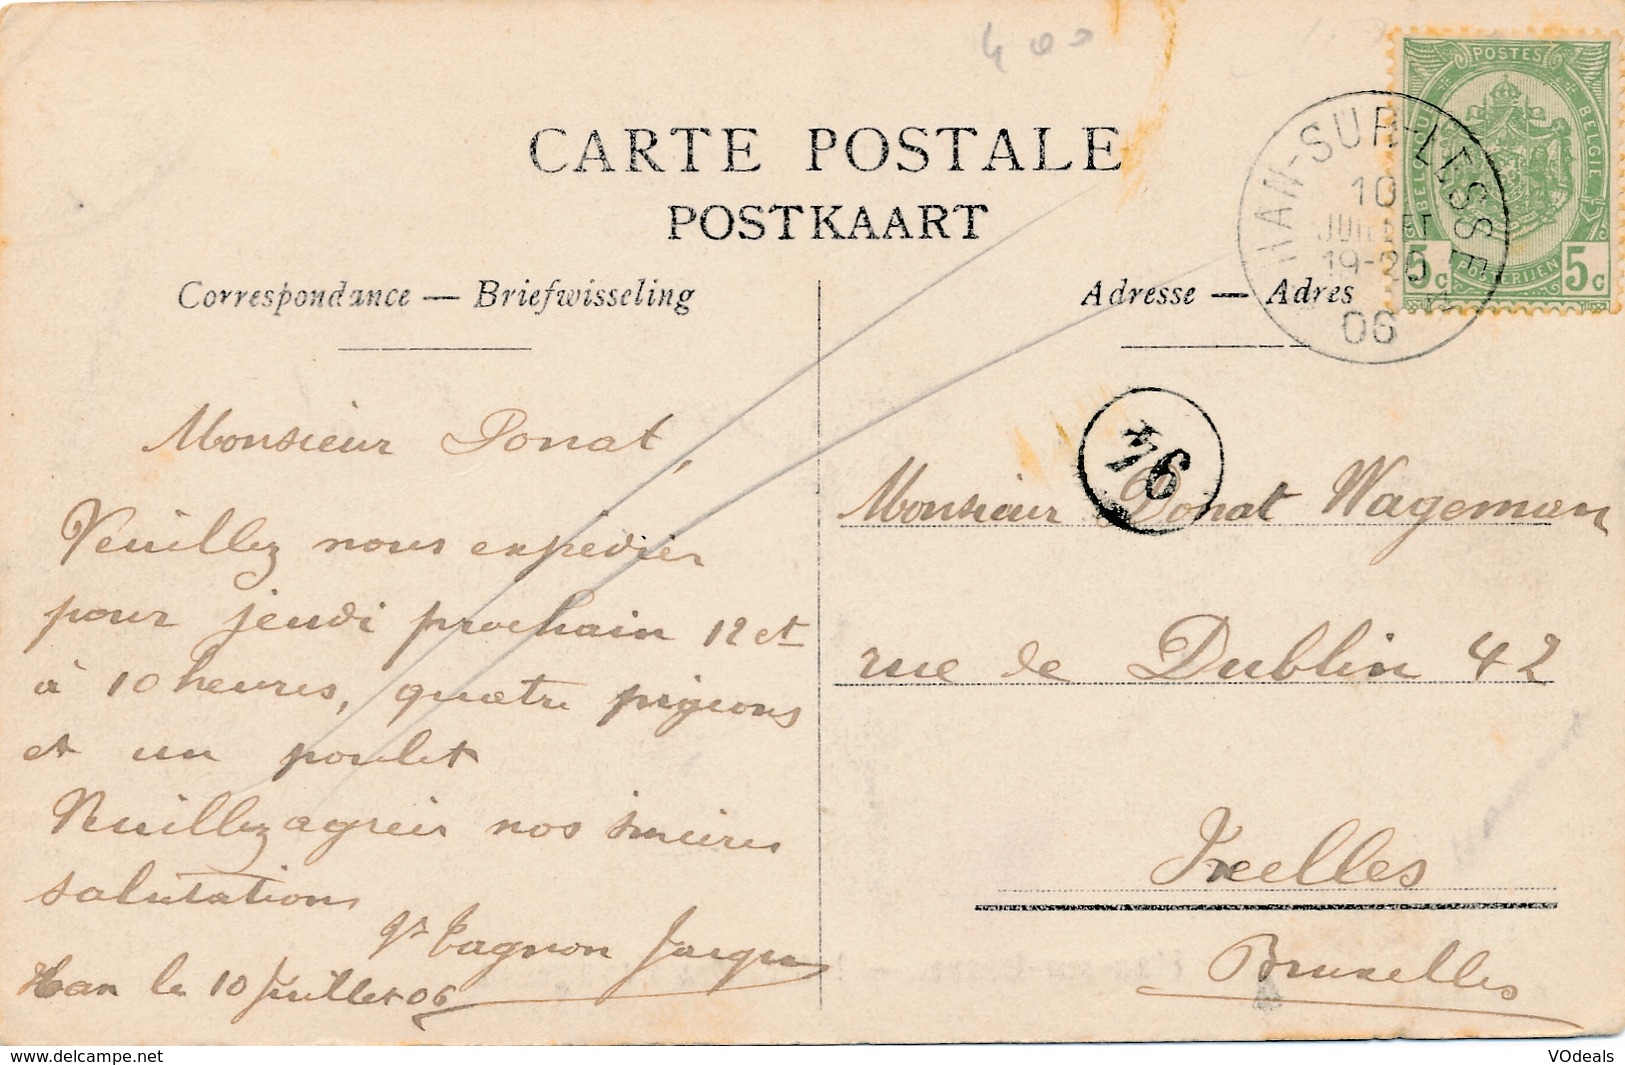 400
CARTE POSTALE
POSTKAART
Correspondance — Briefwisseling
Monsieur Donat,
Veuillez nous expédier
pour jeudi prochain 12 et
à 10 heures, quatre pigeons
et un poulet
Veuillez agréer nos sincères
salutations
Tagnon Jacques
Han le 10 Juillet 06
Adresse — Adres
POSTES
BELGIQUE
BELGIE
POSTERIJEN
5c
5c
HAN-SUR-LESSE
10
JUILLET
19-20
06
94
Monsieur Donat Wageman
rue de Dublin 42
Ixelles
Bruxelles
delcampe.net
VOdeals